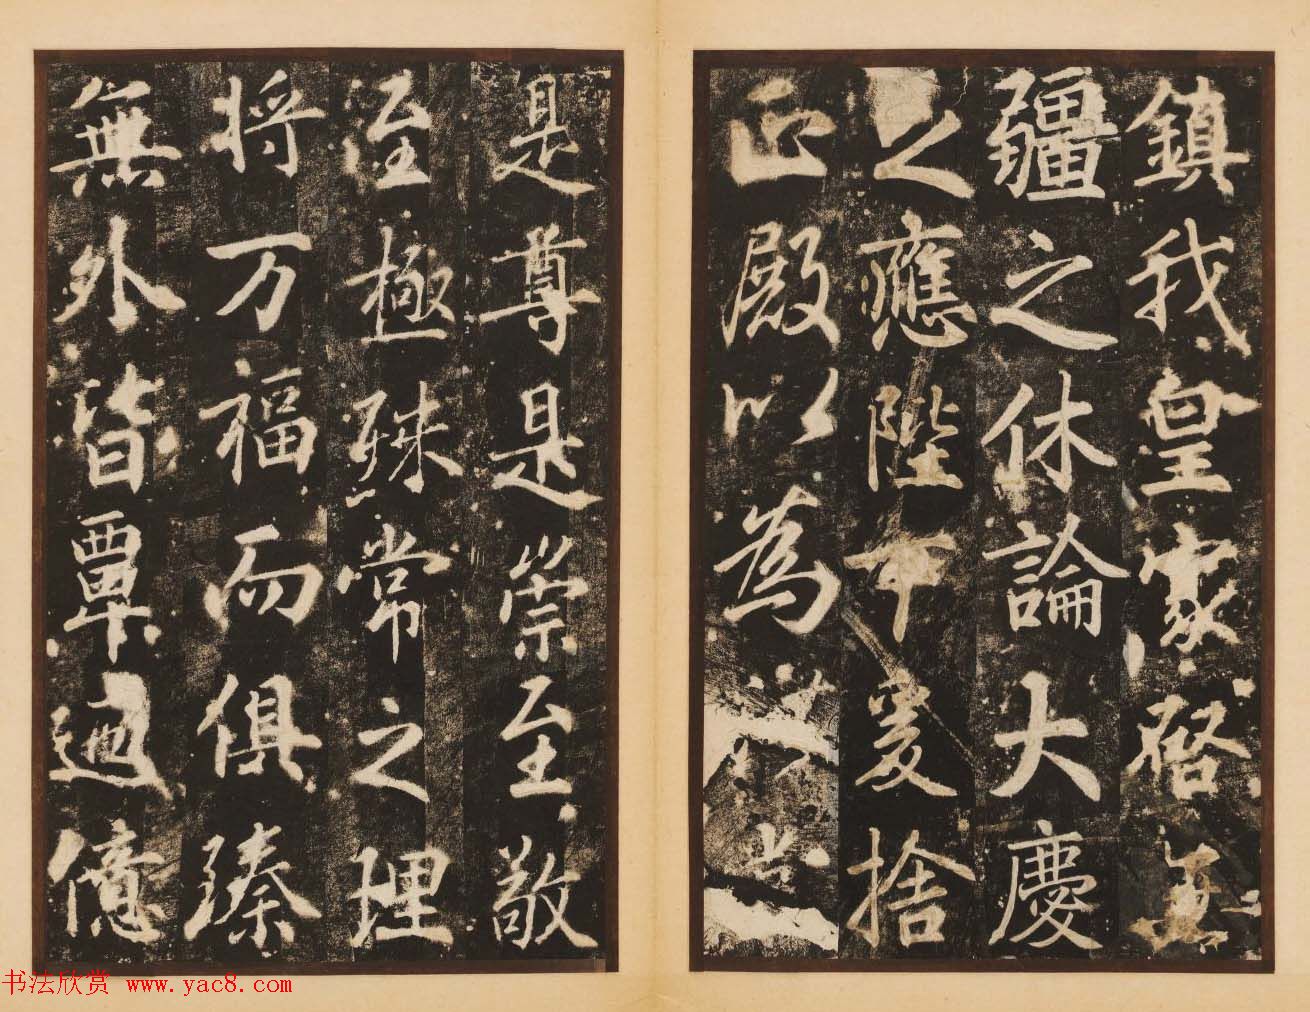 鎮我皇家啓無
疆之休論大慶
之應陛下爰捨
正殿以為
是尊是崇至敬
至極殊常之理
将万福而俱臻
無外皆覃迊億
书法欣赏 www.yac8.com